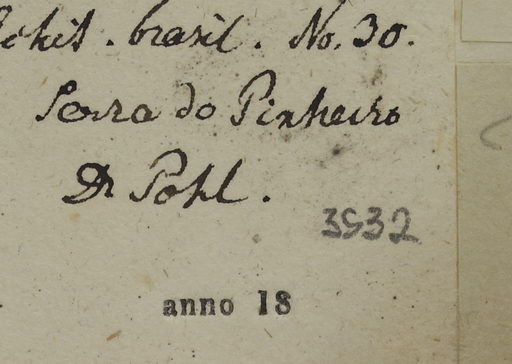 brasil. No. 30.
Serra do Pinheiro
Dr Pohl.
3932
anno 18